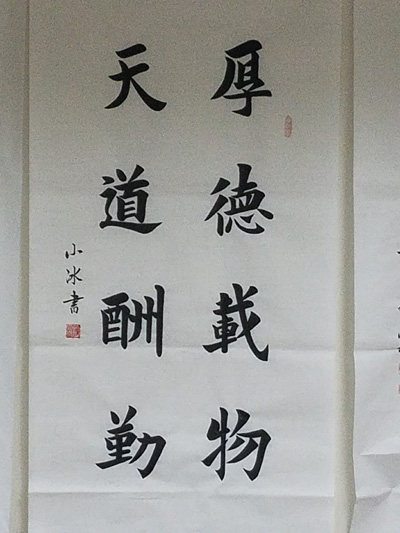 厚德載物
天道酬勤
小冰書